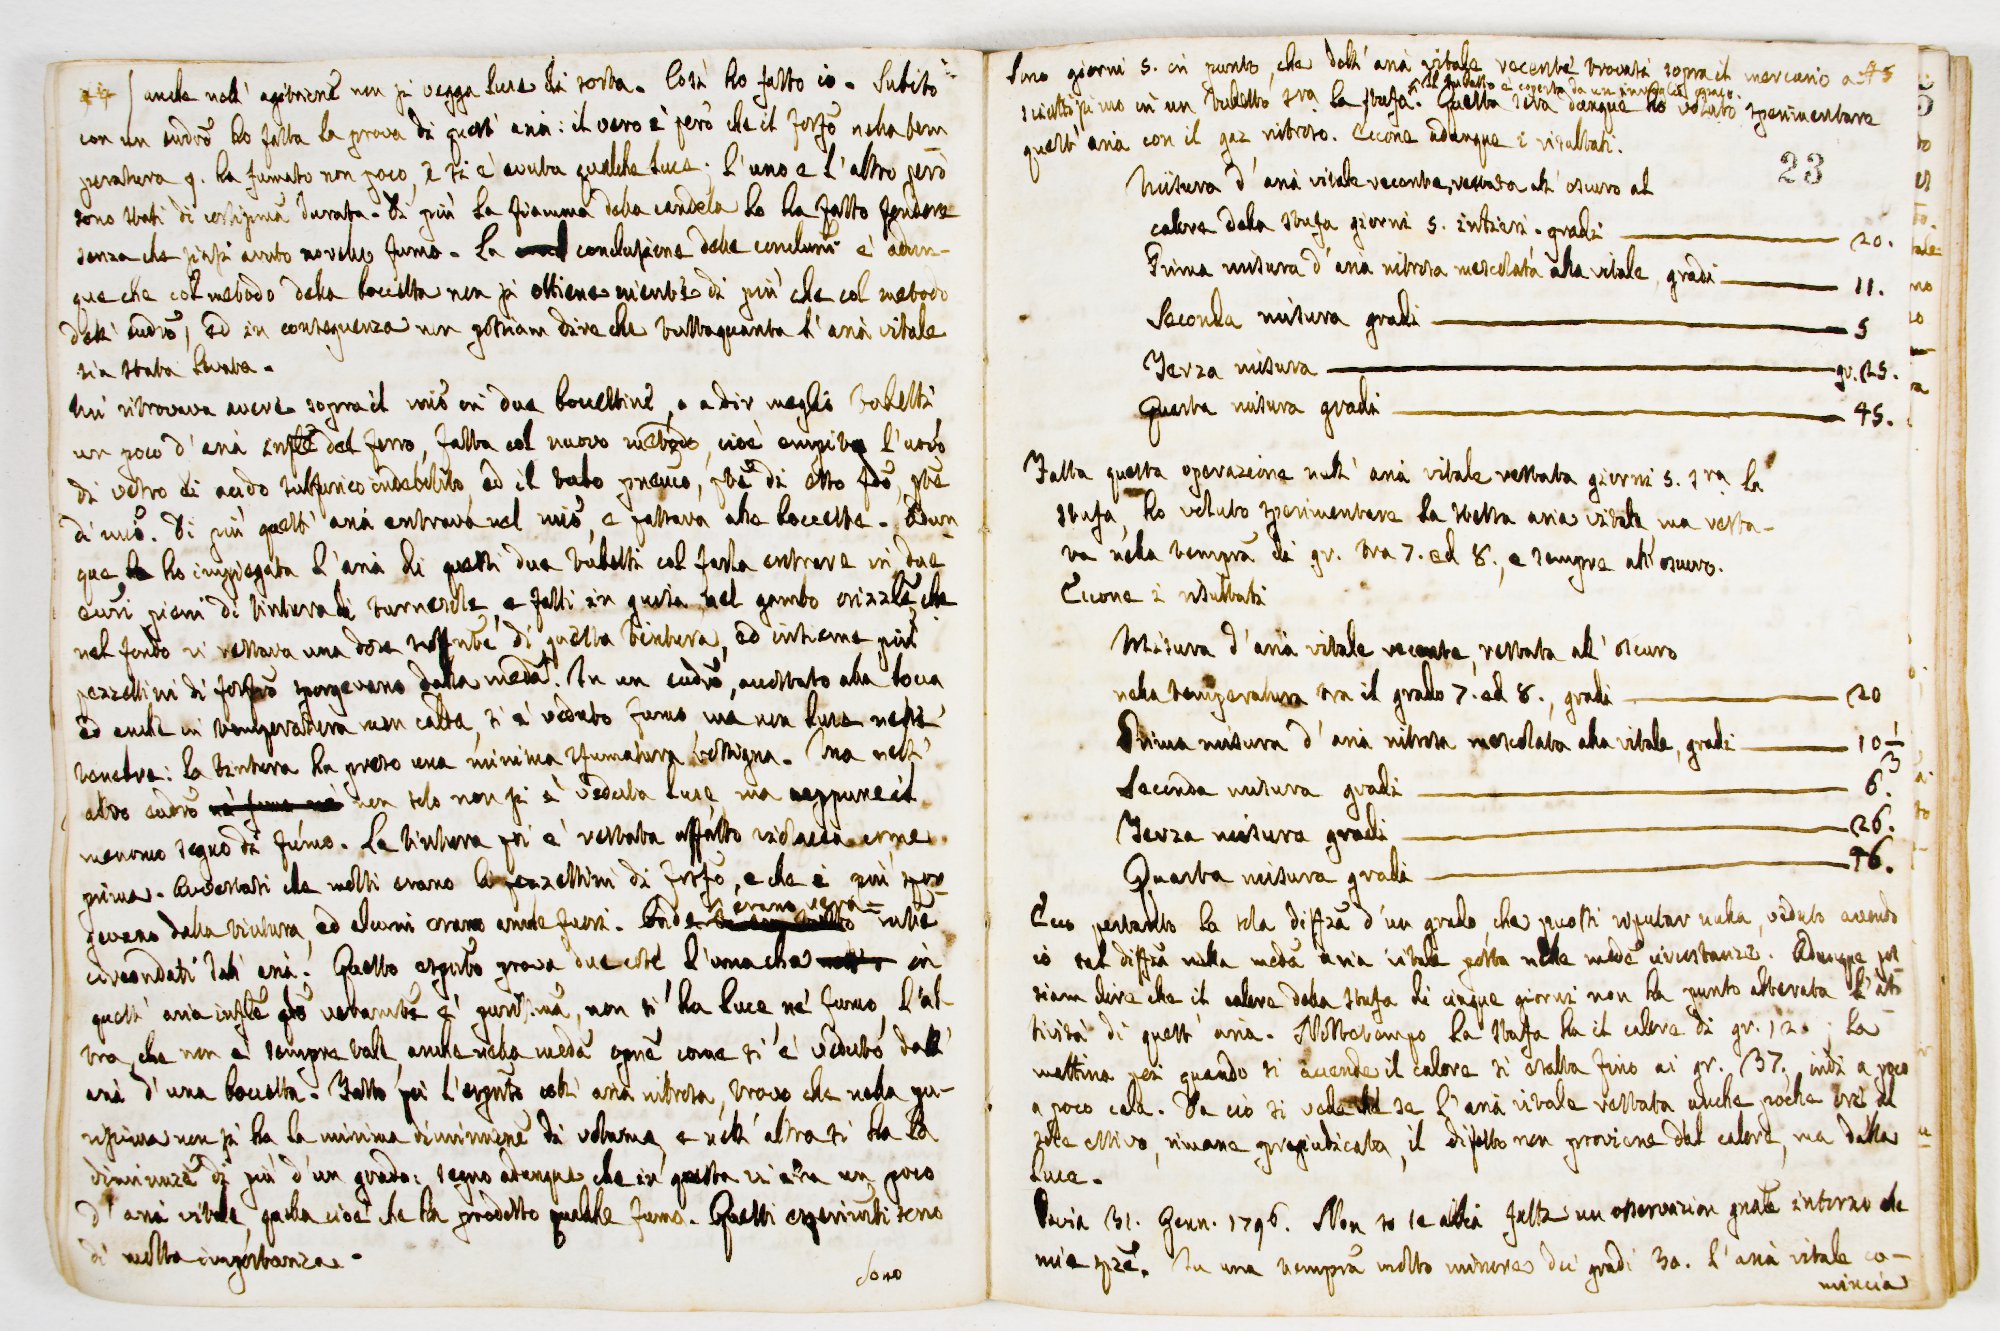 44 anche nell' agitazione non si vegga luce di sorta. Così ho fatto io. Subito
con un eudro ho fatta la prova di quest' aria: il vero è però che il fosfo nella tem=
peratura 9. ha fumato non poco, e si è avuta qualche luce; l'uno e l'altro però
sono stati di cortissima durata. Di più la fiamma della candela lo ha fatto fondere
senza che siasi avuto novello fumo. La conclusione delle conclusni è adun-
que che col metodo della boccetta non si ottiene niente di più che col metodo
dell' eudro, ed in conseguenza non potriam dire che tuttaquanta l'aria vitale
sia stata levata.
Mi ritrovava avere sopra il mio in due boccettine, o a dir meglio tubetti
un poco d'aria del ferro, fatta col nuovo metodo, cioè empita l'uovo
di vetro di acido sulfurico indebolito, ed il tubo
di Di più quest' aria entrava nel e passava alle boccette. Adun=
que ho impiegata l'aria di questi due tubetti col farla entrare in due
eudri pieni di tintura di turnesole, e fatti in guisa nel gambo che
nel fondo vi restava una dose di questa tintura, ed insieme più
pezzettini di fosfro sporgevano dalla meda. In un eudro, accostato alla bocca
ed anche in temperatura men calda, si è veduto fumo ma non luce nelle
tenebre: la tintura ha preso una minima sfumatura Ma nell'
altro eudro né fumo né non solo non si è veduta luce, ma neppure il
menomo segno di fumo. La tintura poi è restata affatto violacea come
prima. Avvertasi che molti erano li pezzettini di fosfo, e che i più spor=
gevano dalla tintura, ed alcuni erano anche fuori. Onde erano vera=
circondati dall' aria. Questo prova due cose l'una che in
quest' aria non si ha luce né fumo, l'al-
tra che non è sempre tale anche nella meda come si è veduto dall'
aria d'una boccetta. Fatto poi l' coll' aria nitrosa, trovo che nella pu-
rissima non si ha la minima diminzne di volume, e nell' altra si ha la
diminuzne di più d'un grado: segno adunque che in questa vi era un poco
d'aria vitale, quella cioè che ha prodotto qualche fumo. Questi sono
di molta importanza.
Sono
Sono giorni 5. in punto, che dell' aria vitale recente trovata sopra il mercurio a 45
in un tubetto tra la stufa. Il tubetto è coperto da un Questa sera dunque ho voluto sperimentare
quest' aria con il gaz nitroso. Eccone adunque i risultati.
23
Misura d'aria vitale recente, restata all' oscuro al
calore della stufa giorni 5. intieri. gradi 20.
Prima misura d'aria nitrosa mescolata alla vitale, gradi 11.
Seconda misura gradi 5
Terza misura gr. 25.
Quarta misura gradi 45.
Fatta questa operazione nell' aria vitale restata giorni 5. tra la
stufa, ho voluto sperimentare la stessa aria vitale ma resta-
ta nella tempra di gr. tra 7. ed 8., e sempre all' oscuro.
Eccone i risultati
Misura d'aria vitale recente, restata all' oscuro
nella temperatura tra il grado 7. ed 8., gradi 20
Prima misura d'aria nitrosa mescolata alla vitale, gradi 10 1/3
Seconda misura gradi 6.
Terza misura gradi 26.
Quarta misura gradi 46.
Ecco pertanto la sola diffza d'un grado, che puossi reputar nulla, veduto avendo
io tal diffza nella meda aria vitale posta nelle mede circostanze. Adunque pos=
siam dire che il calore della stufa di cinque giorni non ha punto alterata l'at=
tività di quest' aria. Nottetempo la stufa ha il calore di gr. 12.; la
mattina poi quando si accende il calore si esalta fino ai gr. 37, indi a poco
a poco cala. Da ciò si vede che se l'aria vitale restata anche poche ore al
sole estivo, rimane pregiudicata, il difetto non proviene dal calore, ma dalla
luce.
Pavia 31. Genn. 1796. Non so se abbia fatta un osservazion gnale intorno alle
mie spze. In una tempra molto minore dei gradi 30. l'aria vitale co-
mincia